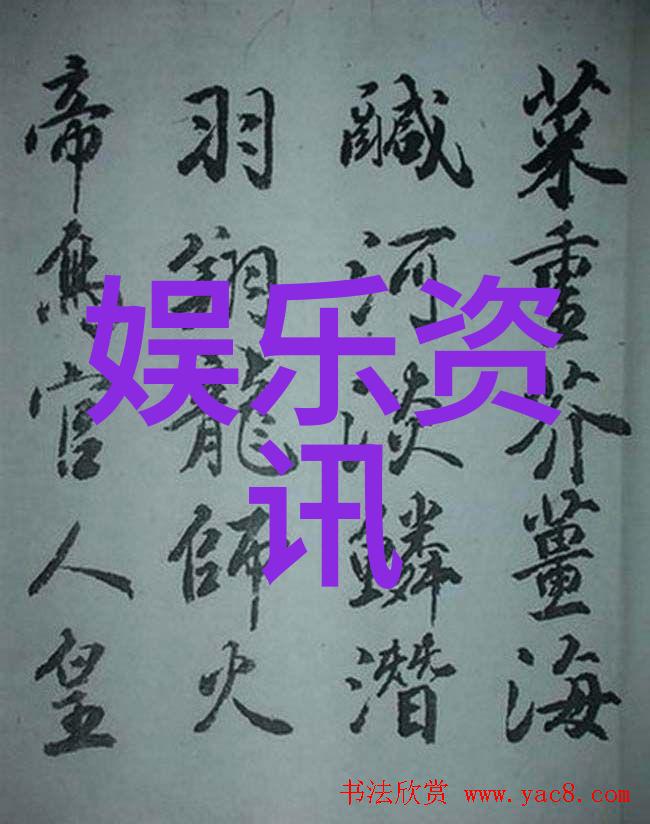 菜重芥薑海
鹹河淡鱗潛
羽翔龍師火
帝鳥官人皇
娱乐资
讯
书法欣赏 www.yac8.com